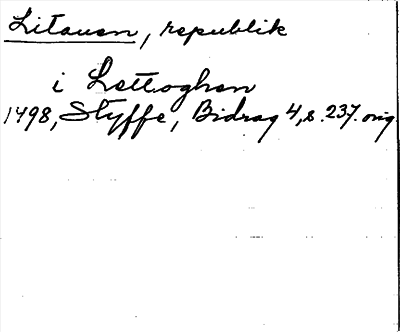 Litauen, republik
i Lettoghen
1498, Styffe, Bidrag 4, s. 237. orig.